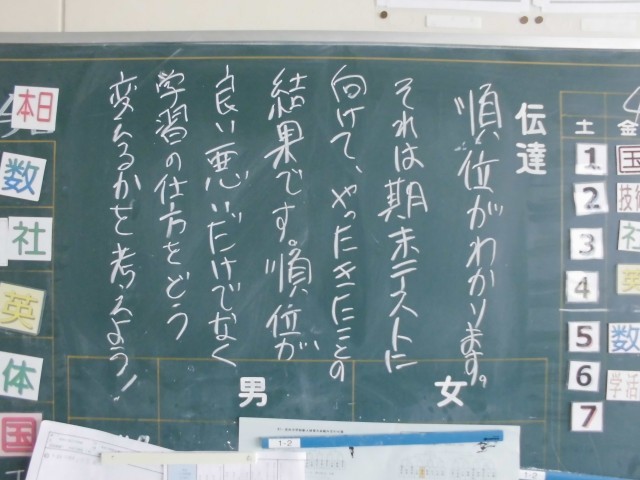 伝達
順位がわかります。
それは期末テストに
向けて、やったきたことの
結果です。順位が
良い悪いだけでなく
学習の仕方をどう
変えるかを考えよう!
女
男
本日
数
社
英
体
国
土
金
1
国
2
技術
3
社
4
英
5
数
6
学活
7
1-2
1-2